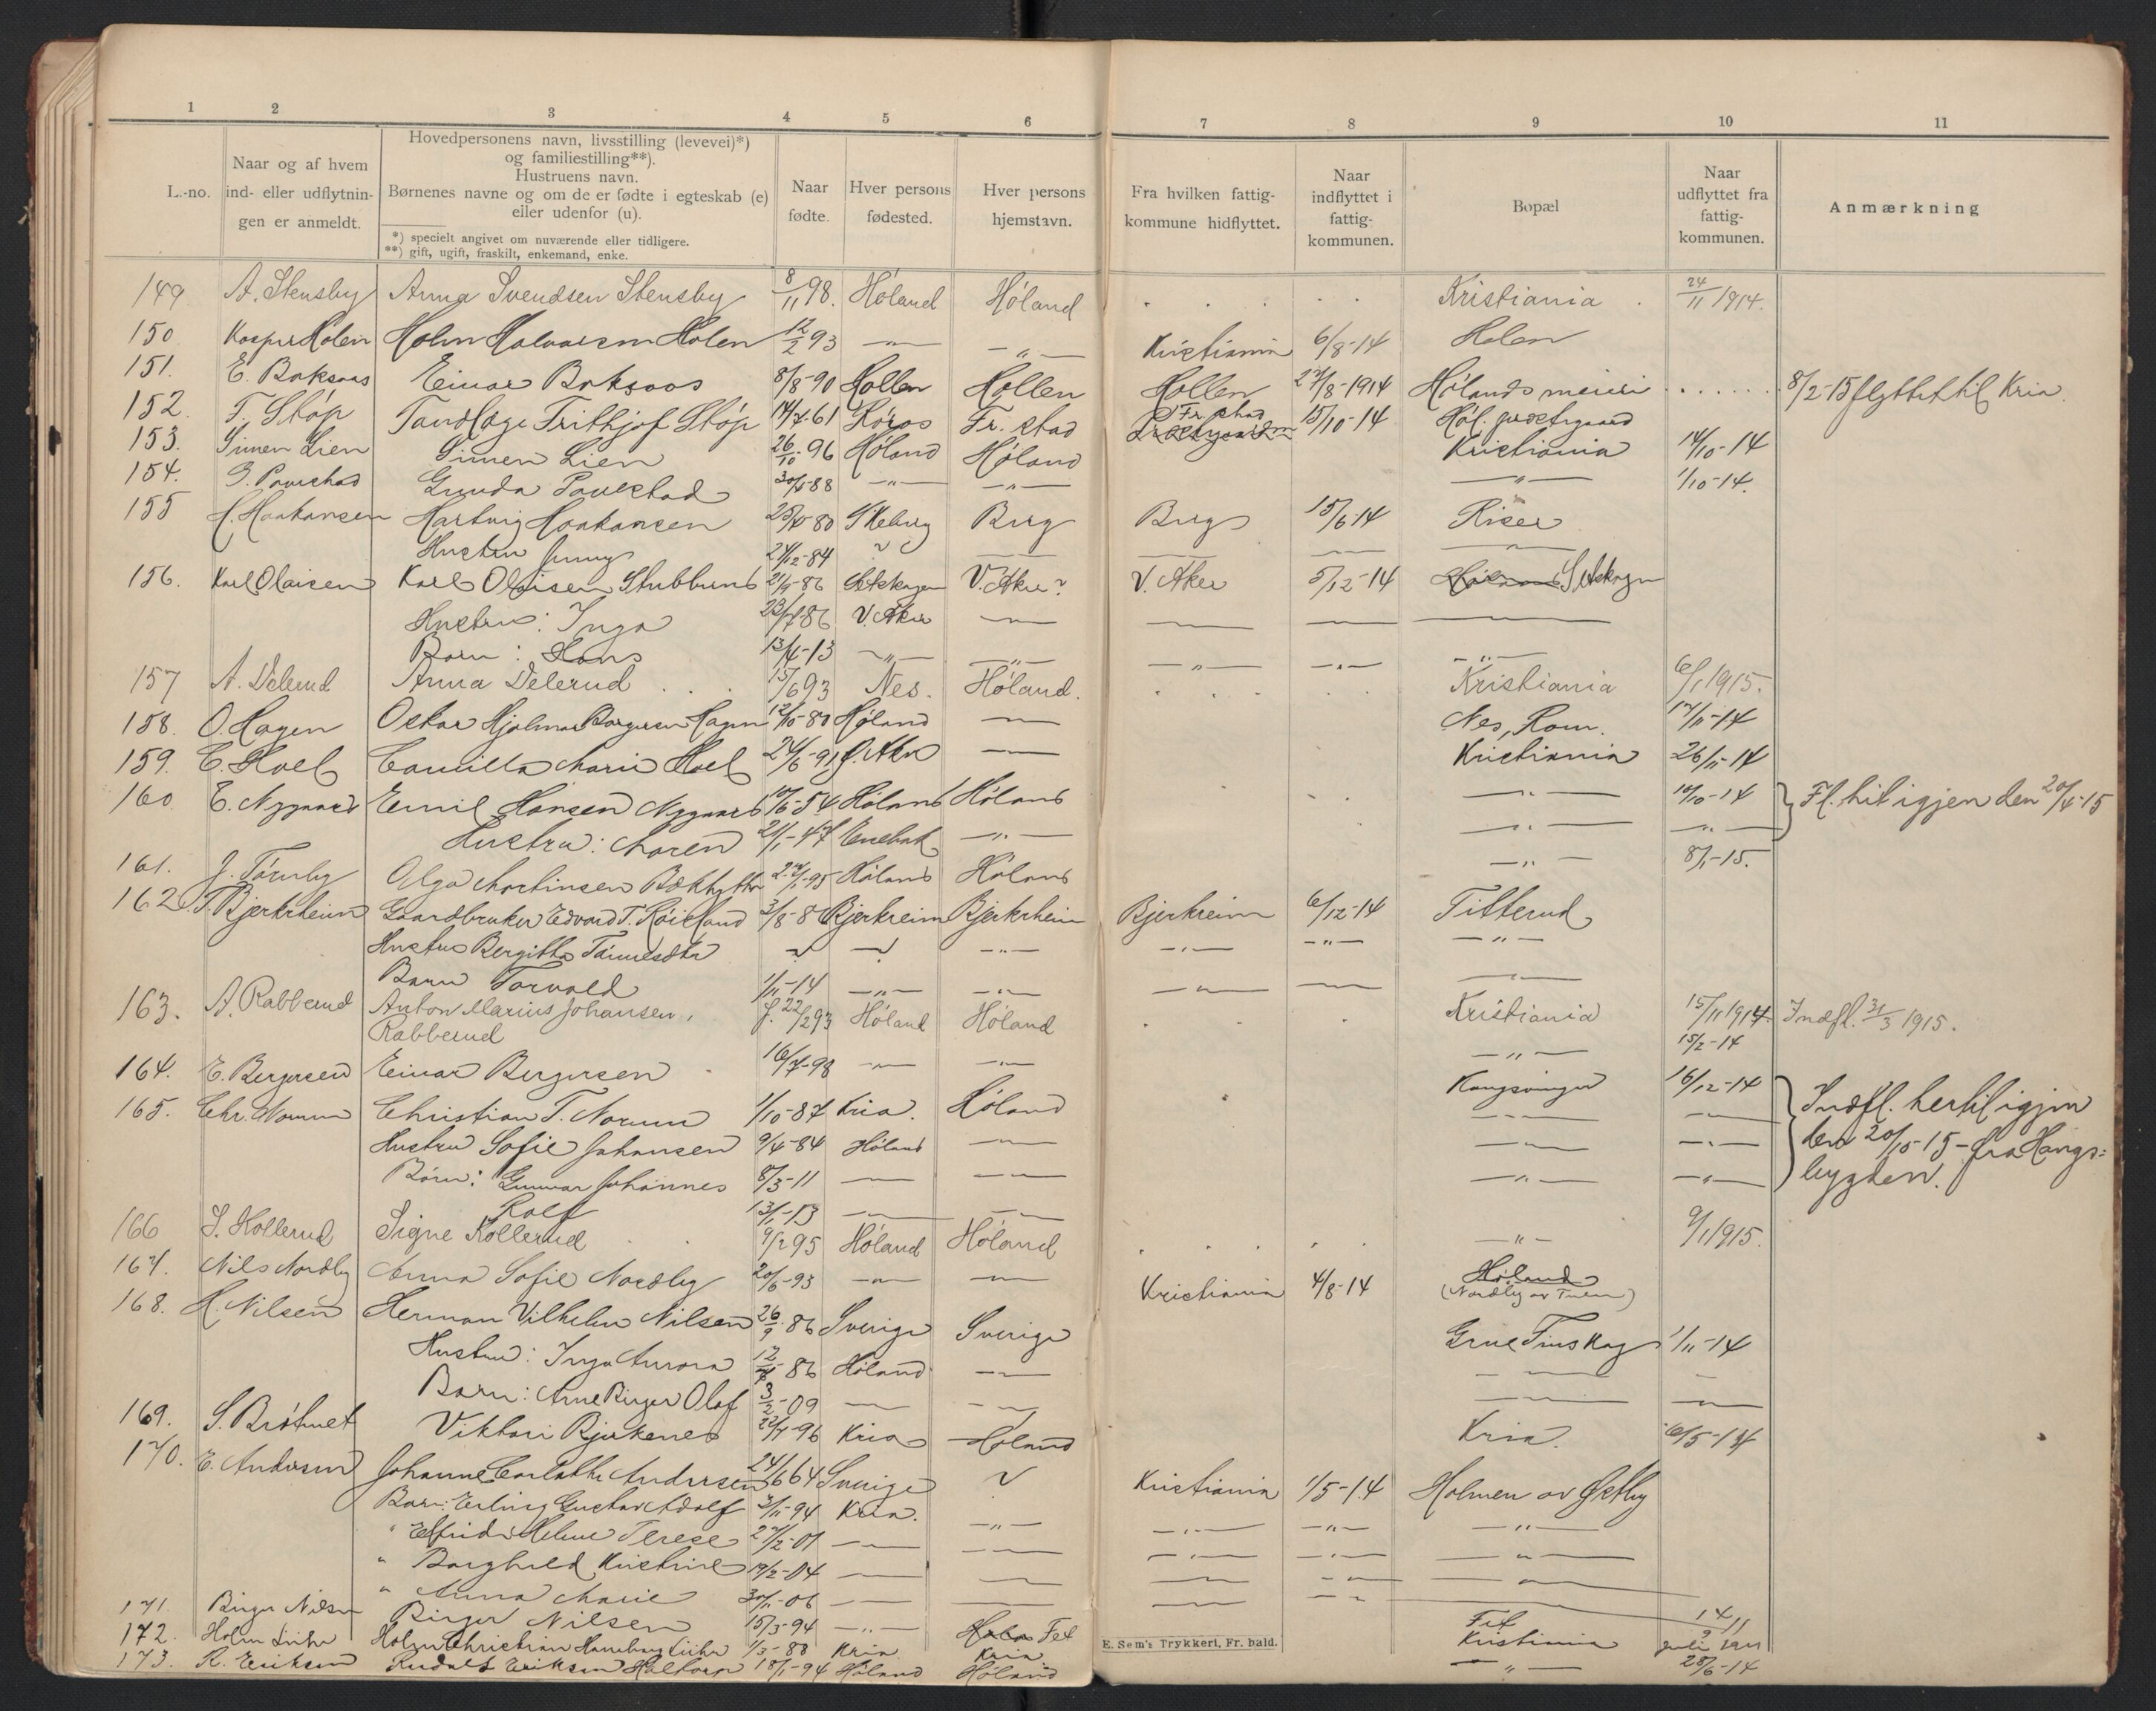 1 2 3 4 5 6 7 8 9 10 11
L.-no.
Naar og af hvem
ind- eller udflytnin-
gen er anmeldt.
Hovedpersonens navn, livsstilling (levevei)*)
og familiestilling**).
Hustruens navn.
Børnenes navne og om de er fødte i egteskab (e)
eller udenfor (u).
*) specielt angivet om nuværende eller tidligere.
**) gift, ugift, fraskilt, enkemand, enke.
Naar
fødte.
Hver persons
fødested.
Hver persons
hjemstavn.
Fra hvilken fattig-
kommune hidflyttet.
Naar
indflyttet i
fattig-
kommunen.
Bopæl
Naar
udflyttet fra
fattig-
kommunen.
Anmærkning
149 A. Stensby Anna Svendsen Stensby 8/11 98. Höland Höland Kristiania 24/11 1914.
150 Kasper Holen Holm Halvorsen Holen 12/2 93 —"— —"— Kristiania 6/8-14 Holen
151. E. Boksaas Einar Boksaas 8/8-90 Hollen Hollen Hollen 27/8-1914 Hølands meieri 8/2-15 flyttet til Kria.
152. F. Støp Tandlæge Frithjof Støp 14/7-61 Røros Fr.stad Fr.stad 15/10-14 Høl. prestegaard
153. Simen Lien Simen Lien 26/10-96 Høland Høland Kristiania 14/10-14
154. G. Povestad Gunda Povestad 88 —"— —"— —"— 1/10-14.
155 H. Haakansen Hartvig Haakansen 80 Berg Berg 15/6-14 Riser
Hustru Jenny 24/12-84
156. Karl Olaisen Karl Olaisen 86 Setskogen V. Aker? V. Aker 5/12-14 Setskogn
Hustru: Inga 23/7-86 V. Aker — — — —
Barn: Hans 13/4-13 —"— —"— —"— —"— —"—
157 A. Delerud Anna Delerud 15/6 93 Nes. Höland. Kristiania 6/1 1915.
158. O. Hagen Oskar Hjalmar Borgersen Hagen 12/10-80 Høland — Nes, Rom. 17/11-14
159. C. Hoel Camilla Marie Hoel 24/6-91 Ø. Aker — Kristiania 26/11-14
160 E. Nygaard Emil Hansen Nygaard 10/6-54 Høland Høland —"— 14/10-14 Fl. hit igjen den 20/4-15
Hustru: Maren 21/1-47 Enebak —"— —"— —"—
161. J. Törnby Olga Martinsen Bækhytta 95 Høland Høland —"— 8/1-15.
162 T. Bjerkrheim Gaardbruker Edvard T. Røisland 3/8-8 Bjerkreim Bjerkrheim Bjerkreim 6/12-14 Titterud
Hustru Bergitte Tønnesdtr ? ? —"— —"— —"— —"—
Barn Torvald 1/11-14 —"— —"— —"— — —
163. A. Rabberud Anton Marius Johansen, f. 22/2 93 Höland Höland Kristiania 15/11 1914. Indfl. 31/3 1915.
Rabberud
164. E. Bergersen Einar Bergersen 16/7-98 —"— —"— —"— 15/2-14
165. Chr. Norum Christian T. Norum 1/10-87 Kria. Høland Kongsvinger 16/12-14 Indfl. hertil igjen
Hustru Sofie Johansen 9/4-84 Høland — — — den 20/10-15 - fra Hangs=
Børn: Gunnar Johannes 8/3-11 — — — —"— bygden.
Rolf 13/1-13 — — —"— —"—
166 S. Kollerud Signe Kollerud 9/2 95 Höland Höland —"— 9/1 1915.
167. Nils Nordby Anna Sofie Nordby 20/6-93 —"— — Kristiania 4/8-14 Høland
(Nordby av )
168. H. Nilsen Herman Vilhelm Nilsen 26/9-86 Sverige Sverige Grue Finskog 1/11-14
Hustru: Inga Aurora 12/7-86 Høland —"— —"— —
Barn: Arne Birger Olaf 3/2-09 — — — —
169. S. Bråtnet Viktori Bjerkenes 22/7-96 Kria Høland Kria.
170. E. Andersen Johanne Andersen 24/6 64 Sverige ? Kristiania 1/5-14 Holmen av Østby
Barn: Erling Gustav Adolf 3/11-94 Kria. —"— —"— —"— —"—
" Elfrida Helene Terese 27/2-01 — — —"— —"— —"—
" Borghild Kristine 19/2-04 — — — —"— —"—
" Anna Marie 30/11-06 — — — —"— —
171. Birger Nilsen Birger Nilsen 15/3-94 —"— Fet Fet
172. Holm Holm Christian 1/3-88 Kria Kria Kristiania juli
173. R. Eriksen Rudolf Eriksen Haltorp 18/1-94 Høland Høland —"— 28/6-14
E. Sem's Trykkeri, Fr. hald.